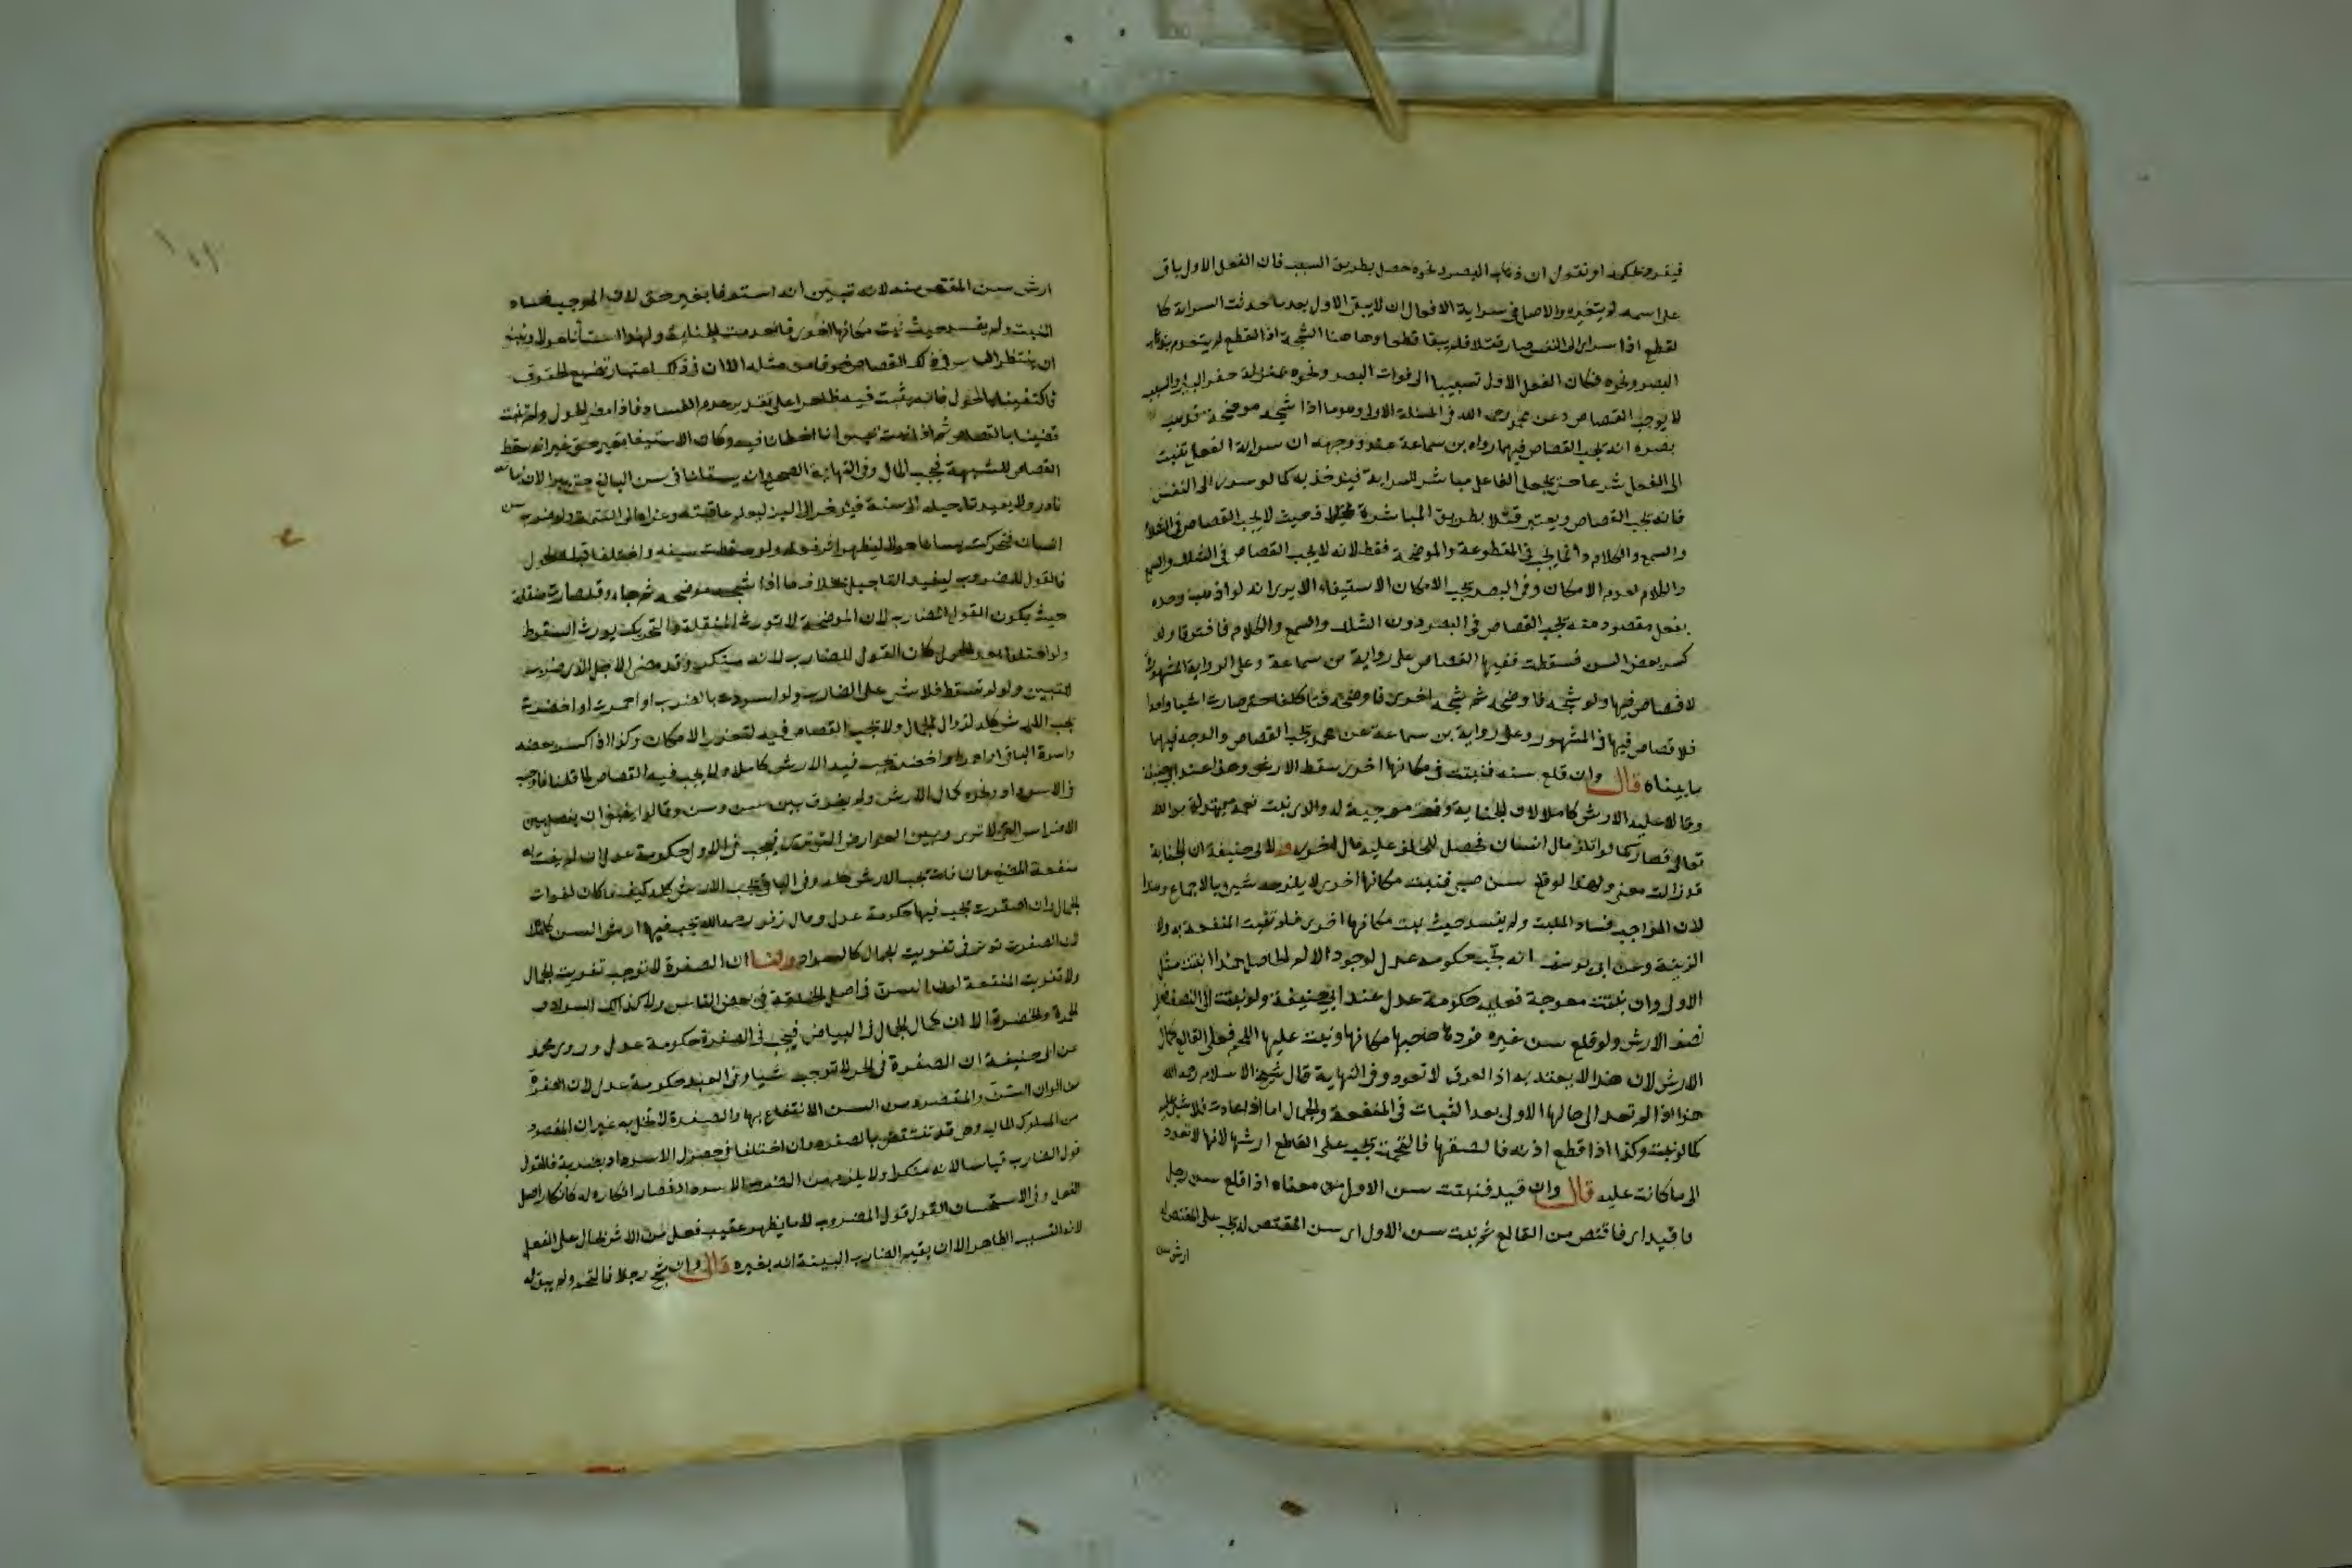 فينفرد بحكمه او نقول ان ذهاب البصر ونحوه حصل بطريق السبب فان الفعل الاول باق
على اسمه لم يتغير والاصل في سراية الافعال ان لا يبقى الاول بعد ما حدثت السراية كا
لقطع اذا سرى الى النفس صار قتلا فلم يبقا قطعا وها هنا الشجة اذ القطع لم ينعدم بذهاب
البصر ونحوه فكان الفعل الاول تسبيبا الى فوات البصر ونحوه بمنزلة حفر البئر والسبب
لا يوجب القصاص وعن محمد رحمه الله في المسئلة الاولى وهو ما اذا شجه موضحة فذهب
بصره انه يجب القصاص فيهما رواه بن سماعة عنه ووجهه ان سراية الفعل تنسب
الى الفعل شرعا حتى يجعل الفاعل مباشر للسراية فيؤخذ به كما لو سرى الى النفس
فانه يجب القصاص ويعتبر قتلا بطريق المباشرة بخلاف حيث لا يجب القصاص في الشلل
والسمع والكلام وانما يجب في المقطوعة والموضحة فقط لانه لا يجب القصاص في الشلل والسمع
والكلام لعدم الامكان وفي البصر يجب لامكان الاستيفاء الا يرى انه لو اذهبه وحده
بفعل مقصود منه يجب القصاص في البصر دون الشلل والسمع والكلام فافترقا ولو
كسر بعض السن فسقطت ففيها القصاص على رواية بن سماعة وعلى الرواية المشهورة
لا قصاص فيها ولو شجه فاوضحه ثم شجه اخرى فاوضحه فتاكلتا حتى صارت شيا واحدا
فلا قصاص فيها في المشهور وعلى رواية بن سماعة عن محمد يجب القصاص والوجه فيهما
ما بيناه قال وان قلع سنه فنبتت في مكانها اخرى سقط الارش وهذا عند ابي حنيفة
وقالا عليه الارش كاملا لان الجناية وقعت موجبة له والذي نبت نعمة مبتدأة من الله
تعالى فصار كما لو اتلف مال انسان فحصل للمتلف عليه مال اخر وله لابي حنيفة ان الجناية
قد زالت معنى ولهذا لو قلع سن صبي فنبتت مكانها اخرى لا يلزمه شيئ بالاجماع وهذا
لان الموجب فساد المنبت ولم يفسد حيث نبتت مكانها اخرى فلم تفت المنفعة به ولا
الزينة وعن ابي يوسف انه تجب حكومة عدل لوجود الالم الحاصل هذا اذا نبتت مثل
الاولى وان نبتت معوجة فعليه حكومة عدل عند ابي حنيفة ولو نبتت الى النصف فعليه
نصف الارش ولو قلع سن غيره فردها صاحبها مكانها ونبت عليها اللحم فعلى القالع كمال
الارش لان هذا لا يعتد به اذ العرق لا تعود وفي النهاية قال شيخ الاسلام رحمه الله
هذا اذا لم تعد الى حالها الاولى بعد الثبات في المنفعة والجمال اما اذا عادت فلا شئ عليه
كما لو نبتت وكذا اذا قطع اذنه فالصقها فالتحمت يجب على القاطع ارشها لانها لا تعود
الى ما كانت عليه قال وان قيد فنبتت سن الاول من معناه اذا قلع سن رجل
فاقيد اي فاقتص من القالع ثم نبت سن الاول اي سن المقتص له يجب على المقتص له
ارش سن
ارش سن المقتص منه لانه تبين انه استوفا بغير حق لان الموجب فساد
المنبت ولم يفسد حيث نبت مكانها اخرى فانعدمت الجناية ولهذا يستأنا حولا وينبغي
ان ينتظر الياس في ذلك القصاص خوفا من مثله الا ان في ذلك اعتبار تضييع الحقوق
فاكتفينا بالحول فانه ينبت فيه ظاهرا على تقدير عدم الفساد فاذا مضى الحول ولم تنبت
قضينا بالقصاص ثم اذا نبتت تبين انا اخطانا فيه وكان الاستيفا بغير حق غير انه سقط
القصاص للشبهة فيجب المال وفي النهاية الصحيح انه يستانا في سن البالغ حتى يبرا لان نباته
نادر ولا يفيد تاجيله الى سنة فيؤخر الى البرء ليعلم عاقبته وعزاه الى التتمة ولو ضرب سن
انسان فتحركت يستانا حولا ليظهر اثر فعله ولو سقطت سنه واختلفا قبل الحول
فالقول للمضروب ليفيد التاجيل بخلاف ما اذا شجه موضحة ثم جاء وقد صارت منقلة
حيث يكون القول للضارب لان الموضحة لا تورث المنقلة والتحريك يورث السقوط
ولو اختلفا بعد الحول كان القول للضارب لانه منكر وقد مضى الاجل الذي ضرب
للتبيين ولو لم تسقط فلا شئ على الضارب ولو اسودت بالضرب او احمرت او اخضرت
يجب الارش كله لزوال الجمال ولا يجب القصاص فيه لتعذر الامكان وكذا اذا كسر بعضه
واسود الباقي او احمر او اخضر تجب فيه الارش كاملا ولا يجب فيه القصاص لما قلنا فاوجب
في الاسوداد ونحوه كمال الارش ولم يفرق بين سن وسن وقالوا ينبغي ان يفصل بين
الاضراس التي لا ترى وبين العوارض التي ترى فيجب في الاول حكومة عدل ان لم يفت به
منفعة المضغ وان فات يجب الارش كله وفي الثاني يجب الارش كله كيف ما كان لفوات
الجمال وان اصفرت تجب فيها حكومة عدل وقال زفر رحمه الله تجب فيها ارش السن كاملا
لان الصفرة توثر في تفويت الجمال كالسواد ولنا ان الصفرة لا توجب تفويت الجمال
ولا تفويت المنفعة لان لون السن في اصل الخلقة في بعض الناس ولا كذلك السواد و
الحمرة والخضرة الا ان كمال الجمال في البياض فيجب في الصفرة حكومة عدل وروى محمد
عن ابي حنيفة ان الصفرة في الحر لا توجب شيا وفي العبد حكومة عدل لان الصفرة
من الوان السن والمقصود من السن الانتفاع بها والصفرة لا تخل به غير ان المقصود
من المملوك المالية وهي قد تنتقص بالصفرة وان اختلفا في حصول الاسوداد بضربه فالقول
قول الضارب قياسا لانه منكر ولا يلزم من الضرب الاسوداد فصار انكاره له كانكار اصل
الفعل وفي الاستحسان القول قول المضروب لان ما يظهر عقيب فعل من الاثر يحال على الفعل
لانه السبب الظاهر الا ان يقيم الضارب البينة انه بغيره قال وان شج رجلا فالتحم ولم يبق له